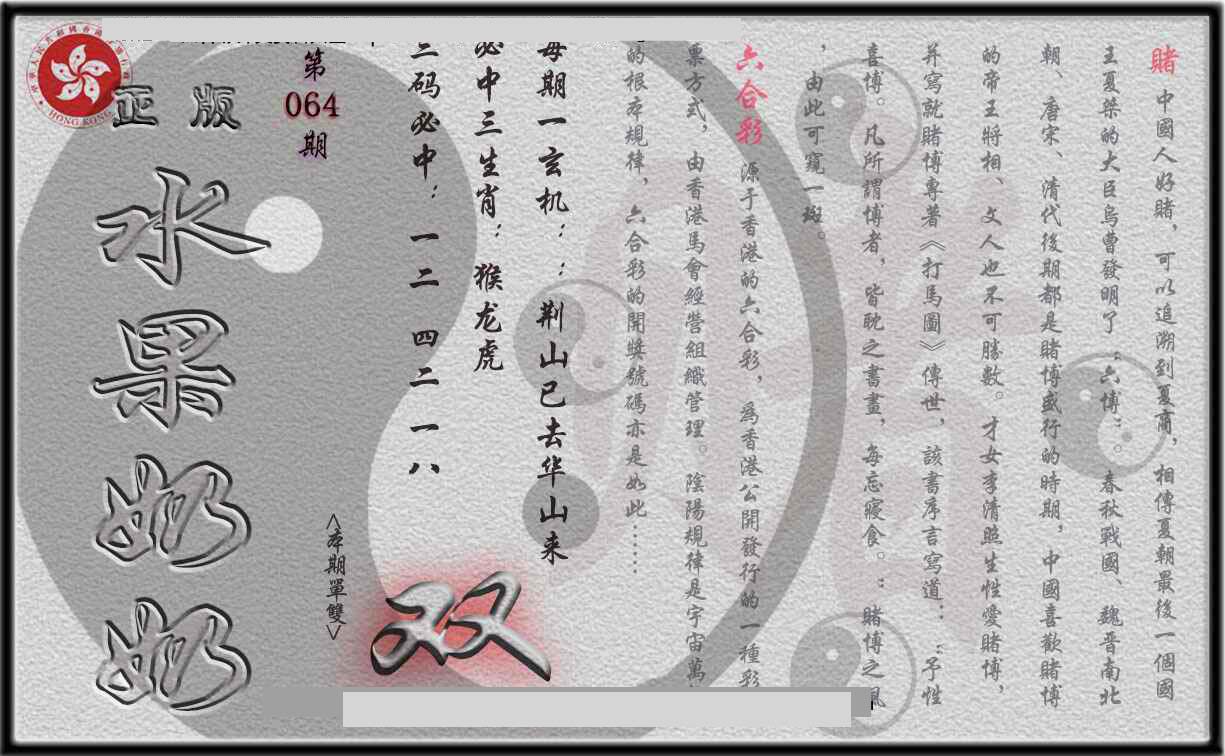 賭 中國人好賭，可以追溯到夏商，相傳夏朝最後一個國
王夏桀的大臣烏曹發明了“六博”。春秋戰國、魏晋南北
朝、唐宋、清代後期都是賭博盛行的時期，中國喜歡賭博
的帝王將相、文人也不可勝數。才女李清照生性愛賭博，
并寫就賭博專著《打馬圖》傳世，該書序言寫道：“予性
喜博。凡所謂博者，皆耽之書畫，每忘寢食。”賭博之風
，由此可窺一斑。
六合彩 源于香港的六合彩，為香港公開發行的一種彩
票方式，由香港馬會經營組織管理。陰陽規律是宇宙萬
的根本規律，六合彩的開獎號碼亦是如此……
每期一玄机：：荆山已去华山来
必中三生肖：猴龙虎
三码必中：一二 四二 一八
双
<本期單雙>
第
064
期
正版
水果奶奶
HONG KONG